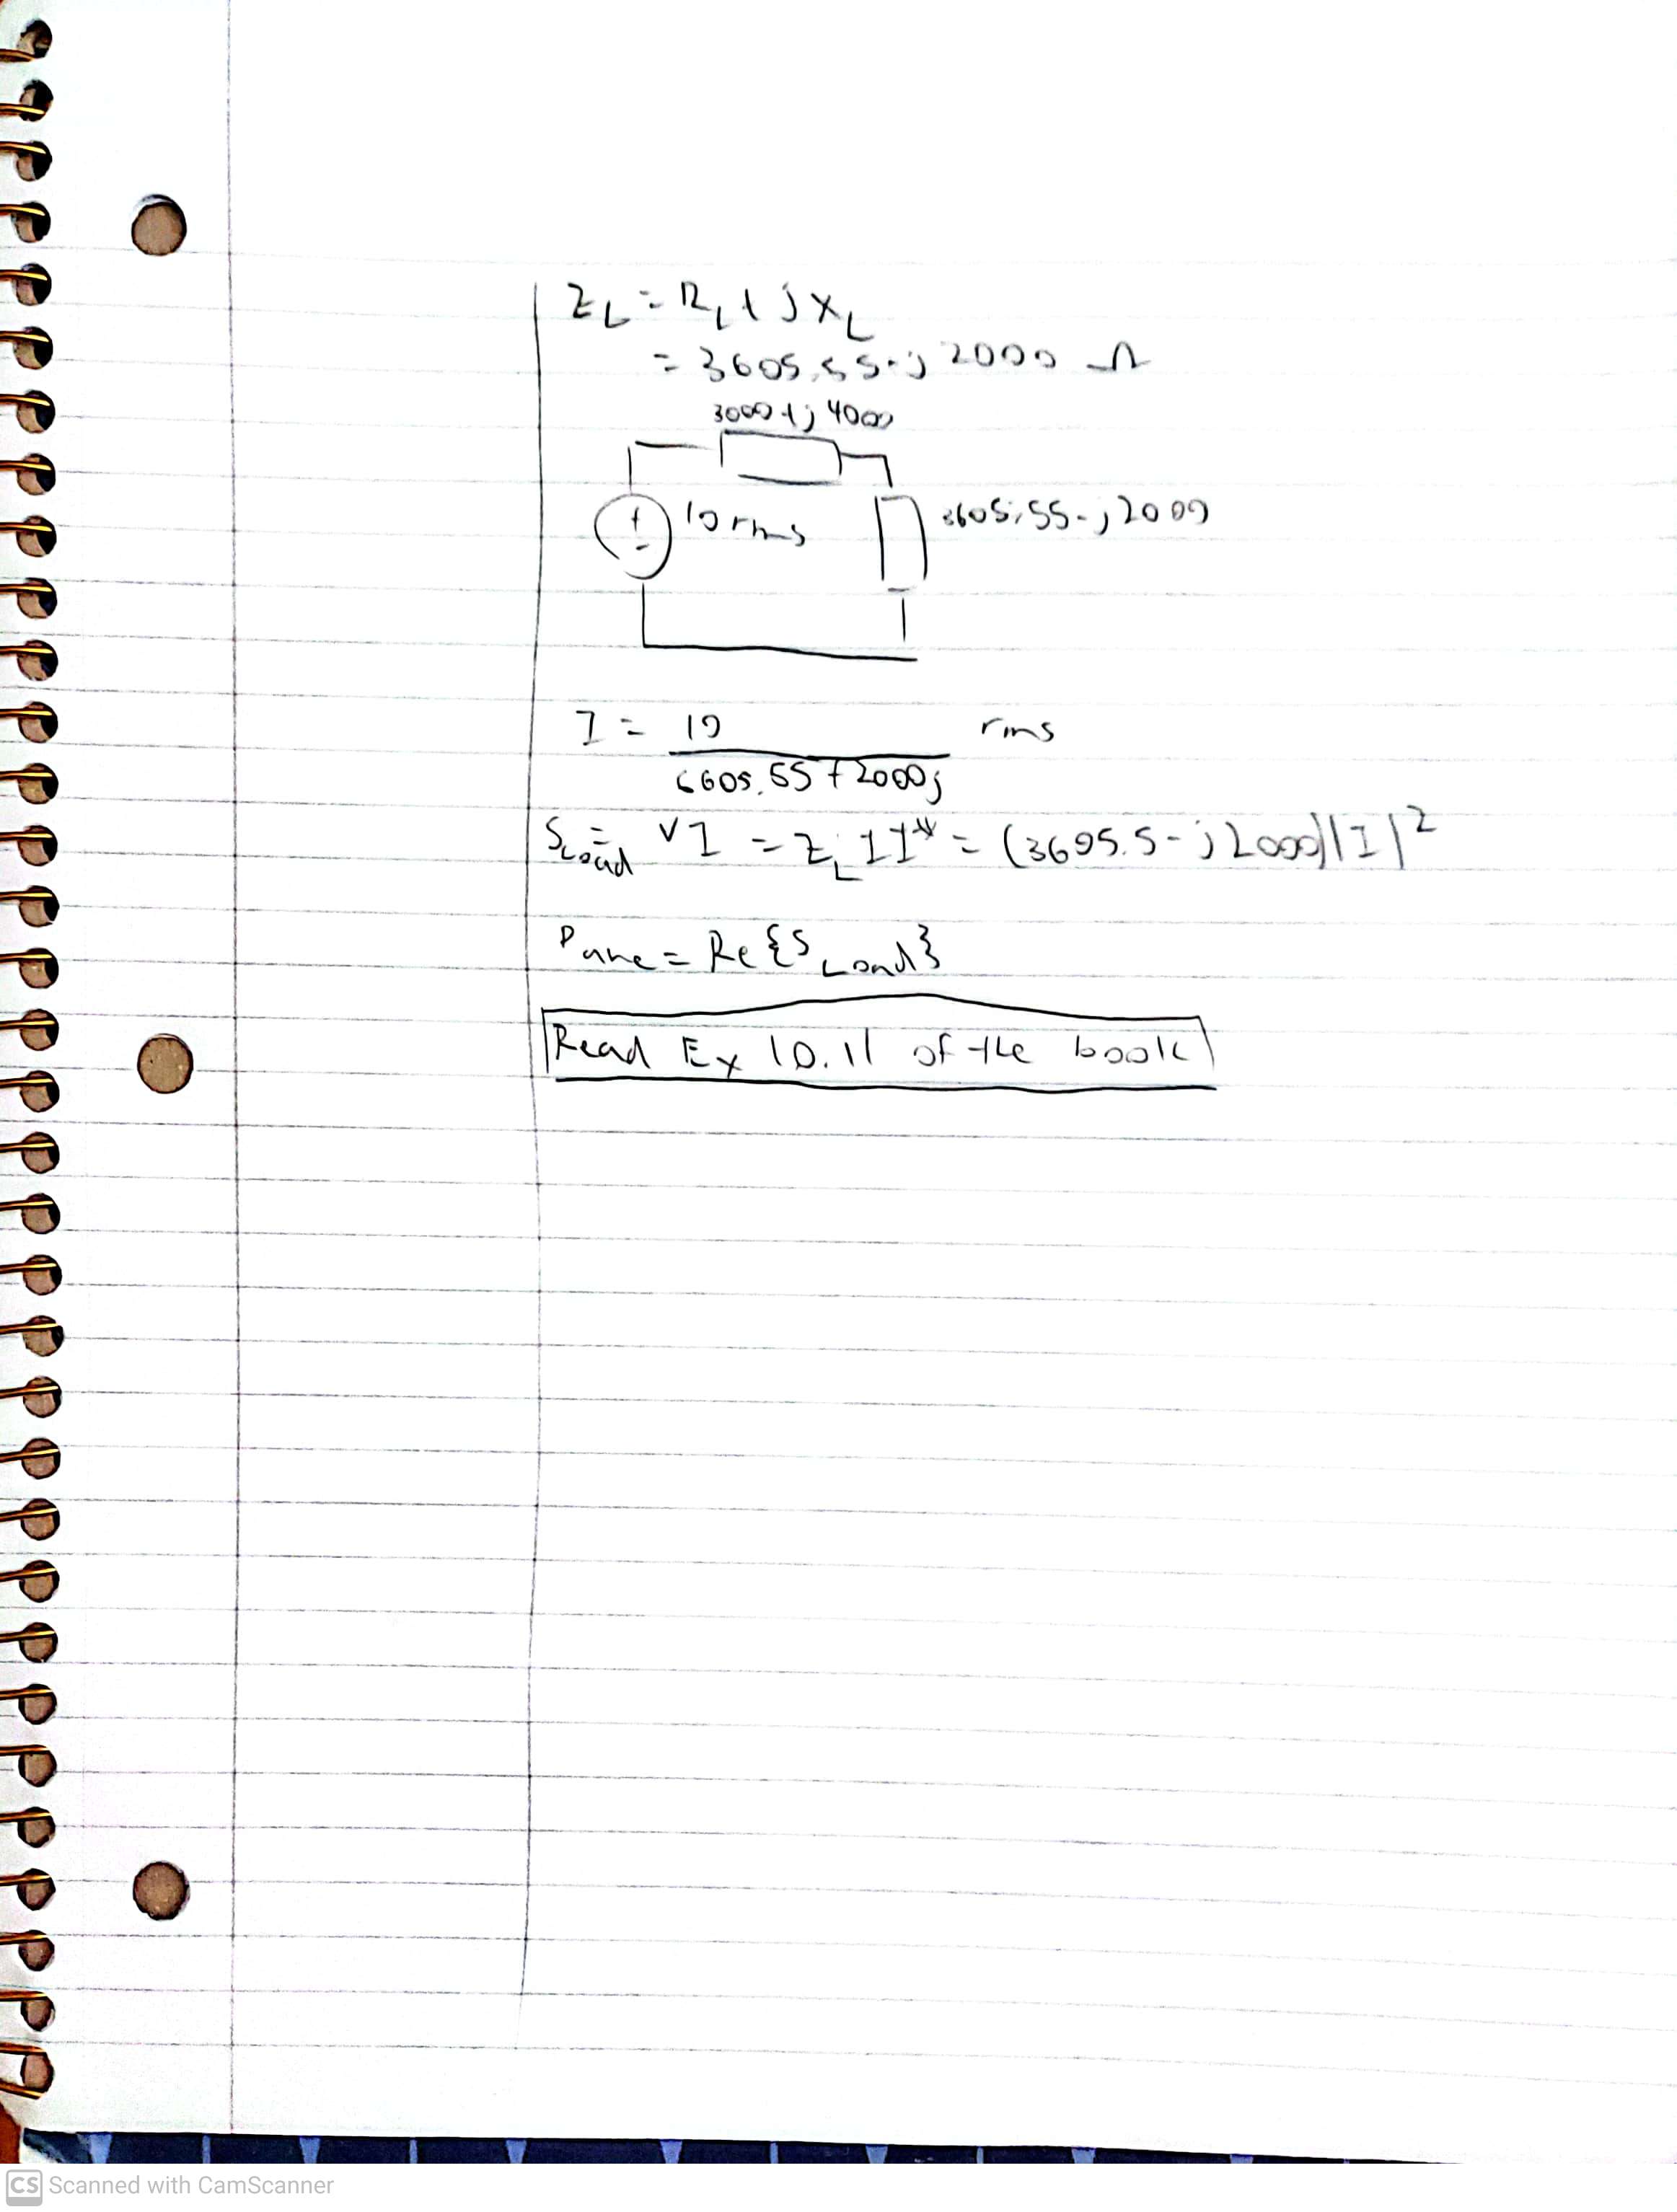 Z_L = R_L + jX_L
= 3605.55 - j 2000 Ω
3000 + j 4000
+
-
10 rms
3605.55 - j 2000
I = 10 / (6605.55 + 2000j) rms
S_Load = VI = Z_L II* = (3605.5 - j 2000)|I|²
P ave = Re{S_Load}
Read Ex 10.11 of the book
CS Scanned with CamScanner